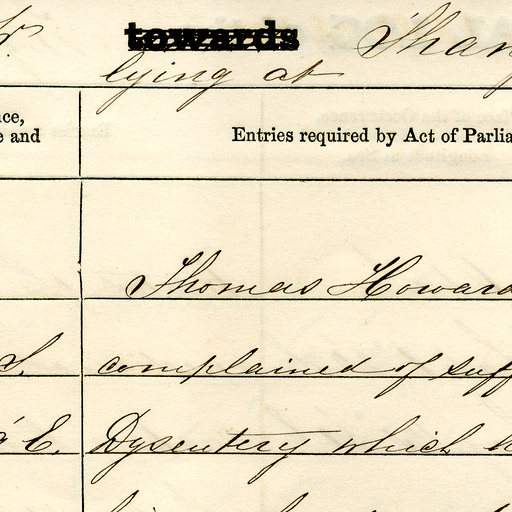 towards
lying at Shan
ce,
e and
Entries required by Act of Parlia
Thomas Howard
S. complained of suff
E. Dysentery which h